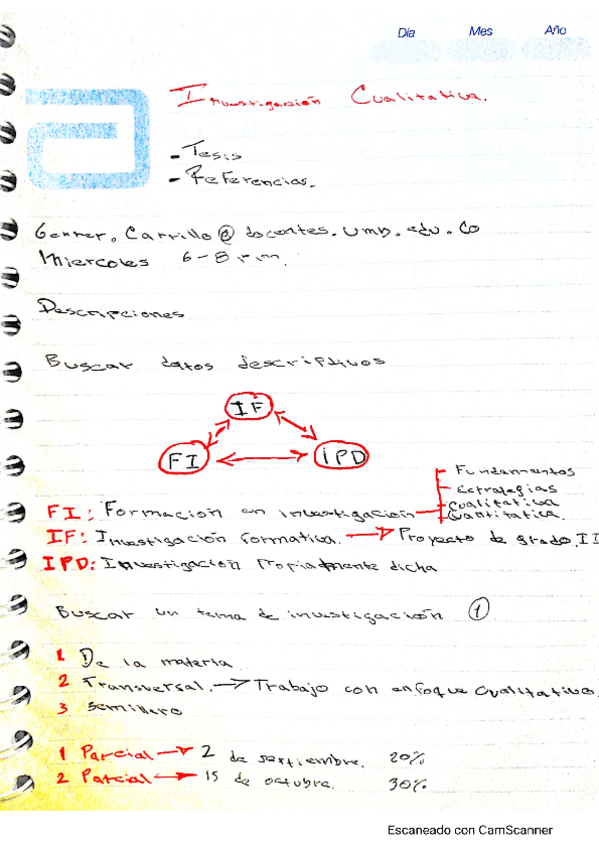 Dia Mes Año
Investigación Cualitativa.
- Tesis
- Referencias.
Genner.Carrillo@docentes.umb.edu.co
Miercoles 6-8 p.m.
Descripciones
Buscar datos descriptivos
IF
FI IPD
Fundamentos
Estrategias
Cualitativa
Cuantitativa.
FI: Formacion en investigación
IF: Investigación formativa. → Proyecto de grado II
IPD: Investigación Propiamente dicha
Buscar un tema de investigación 1
1 De la materia
2 Transversal. → Trabajo con enfoque cualitativo.
3 Semillero
1 Parcial → 2 de septiembre. 20%
2 Parcial → 15 de octubre. 30%
Escaneado con CamScanner